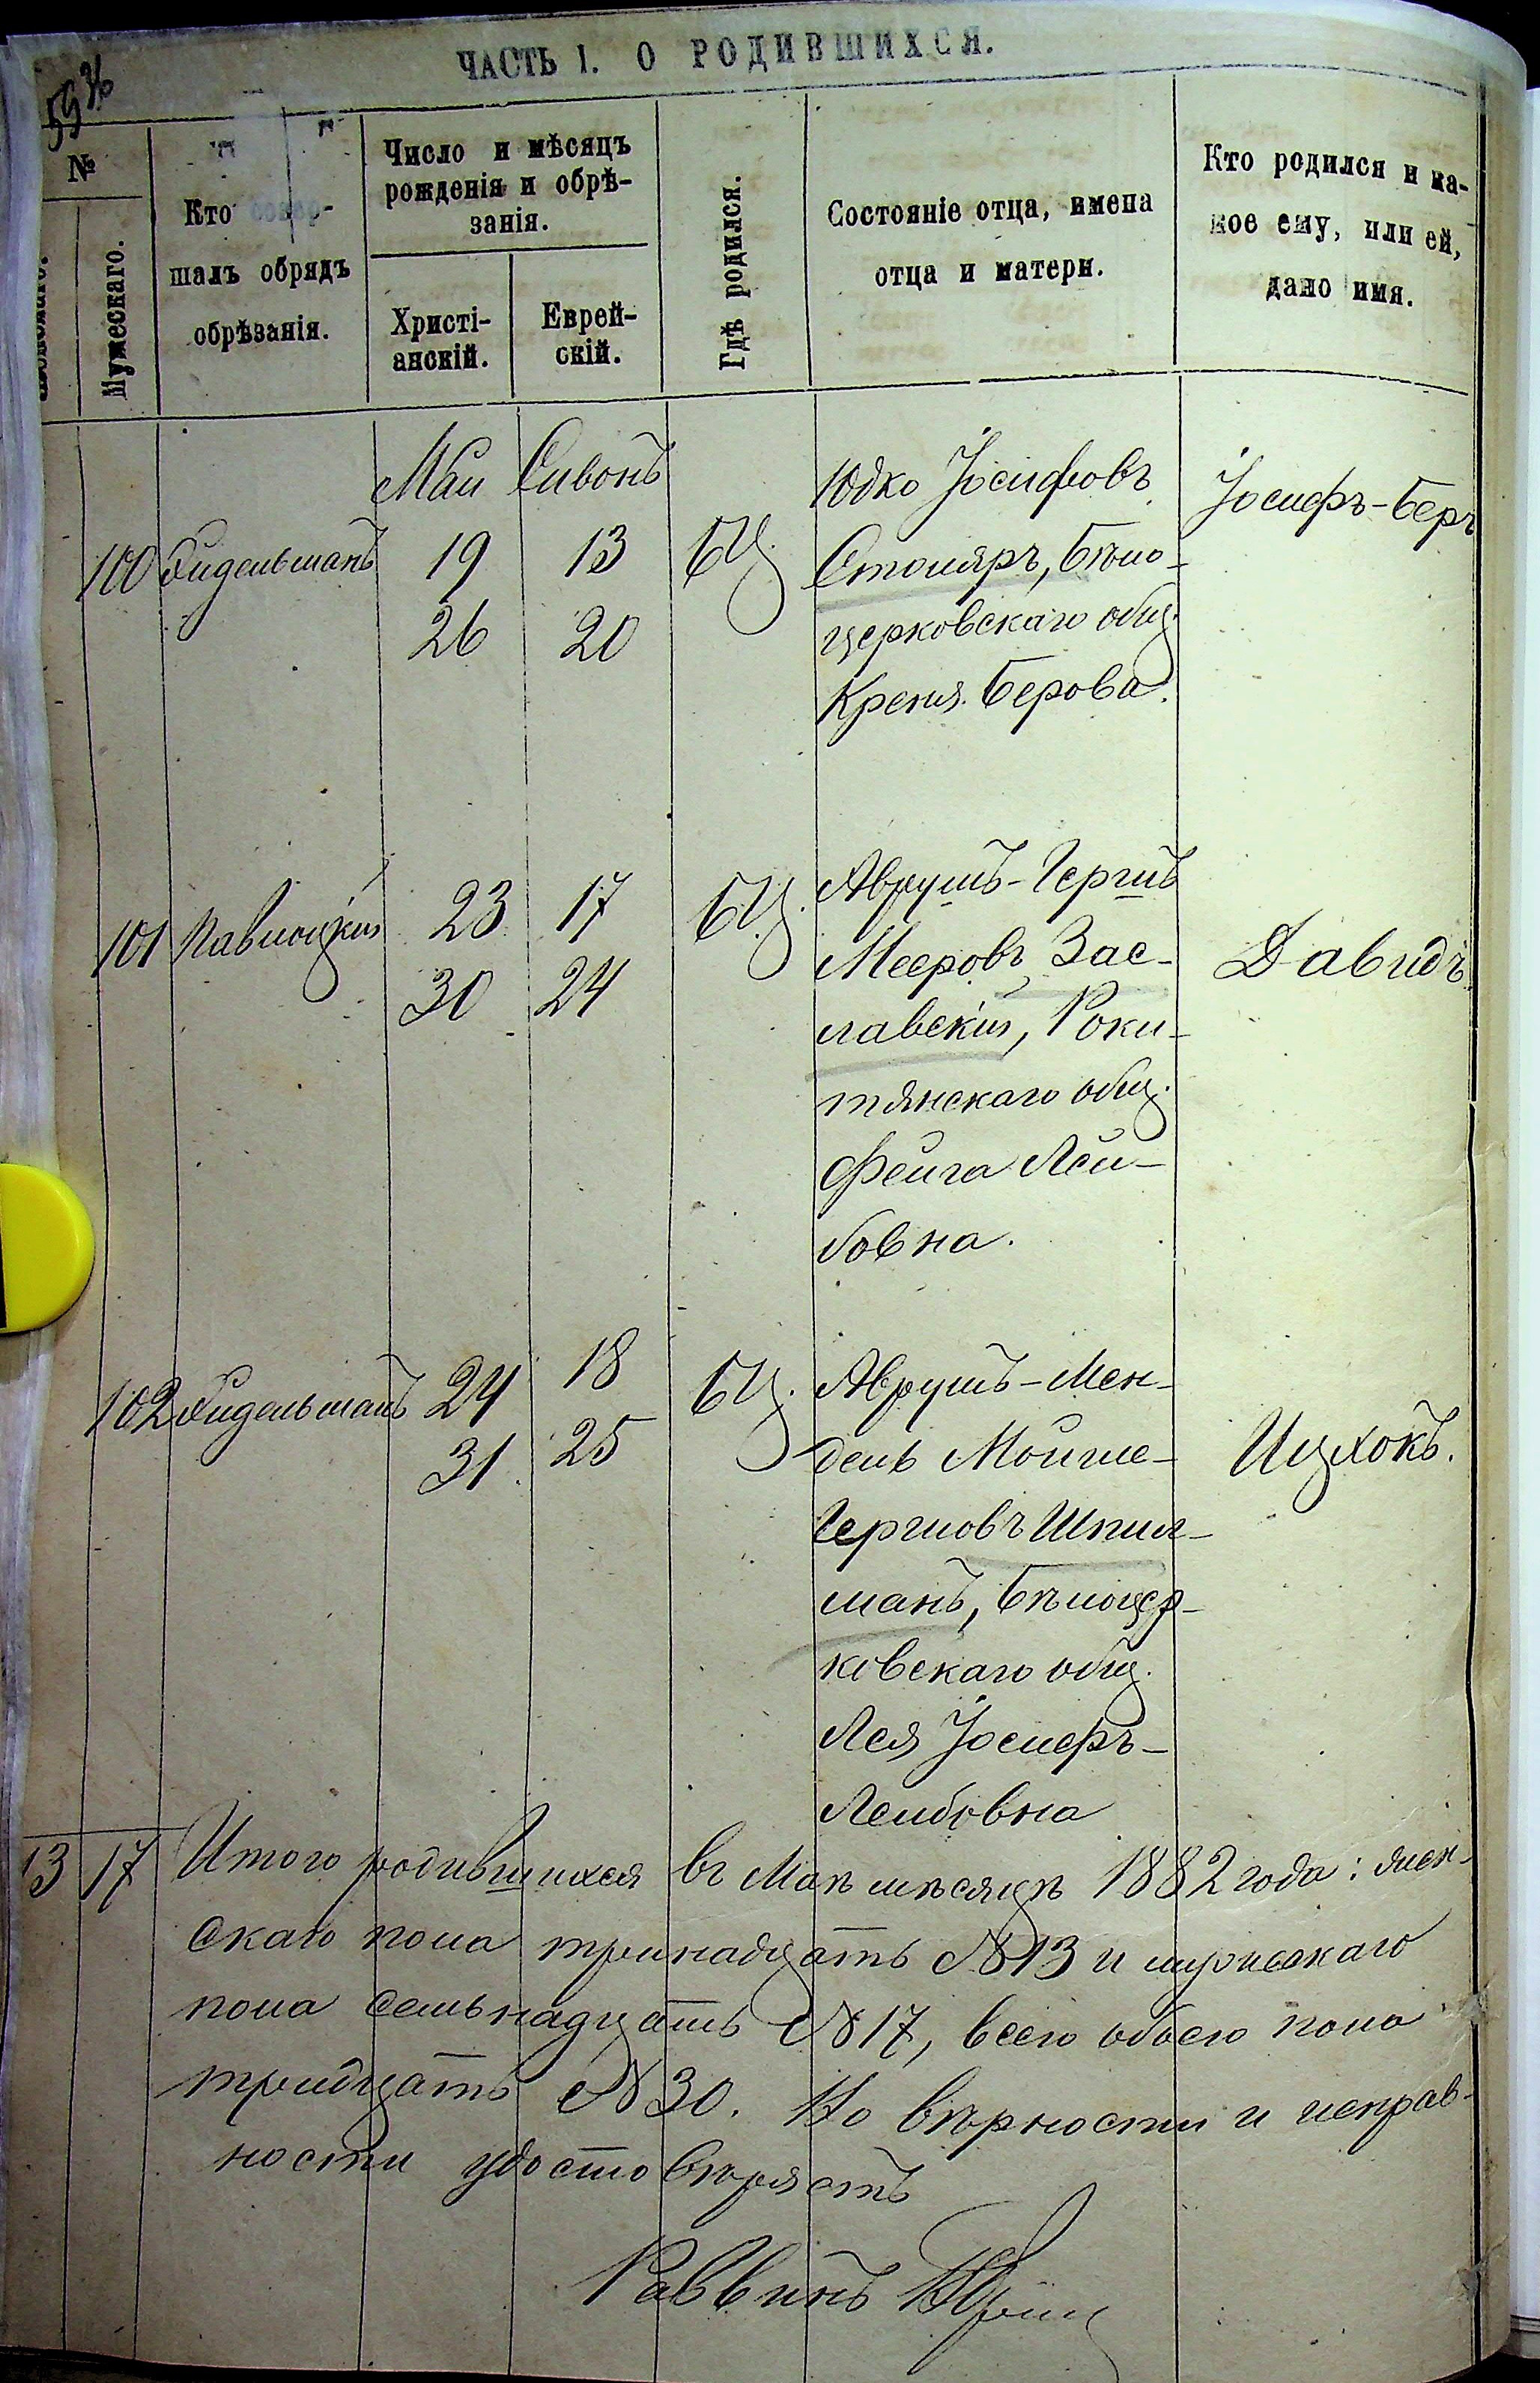 ЧАСТЬ I. О РОДИВШИХСЯ.
№
Мужескаго.
Кто совер-
шалъ обрядъ
обрѣзанія.
Число и мѣсяцъ
рожденія и обрѣ-
занія.
Христі-
анскій.
Еврей-
скій.
Гдѣ родился.
Состояніе отца, имена
отца и матери.
Кто родился и ка-
кое ему, или ей,
дано имя.
Маи Сивонъ
100 Фидельманъ 19 13 БЦ.
26 20
Юдко Іосифовъ
Столяръ, Бѣло-
церковскаго общ.
Креня Берова.
Іосифъ-Беръ
101 Павлоцкій 23 17 БЦ.
30 24
Аврумъ-Гершъ
Мееровъ Зас-
лавскій, Роки-
тянскаго общ.
Фейга Лей-
бовна.
Давидъ
102 Фидельманъ 24 18 БЦ.
31 25
Аврумъ-Мен-
дель Мойше-
Гершовъ Шпил-
манъ, Бѣлоцер-
ковскаго общ.
Лея Іосифъ-
Лейбовна
Ицхокъ.
13 17 Итого родившихся въ Маѣ мѣсяцѣ 1882 года: жен-
скаго пола тринадцать №13 и мужескаго
пола семьнадцать №17, всего обоего пола
тридцать №30. Но вѣрности и исправ-
ности удостовѣряетъ
Раввинъ